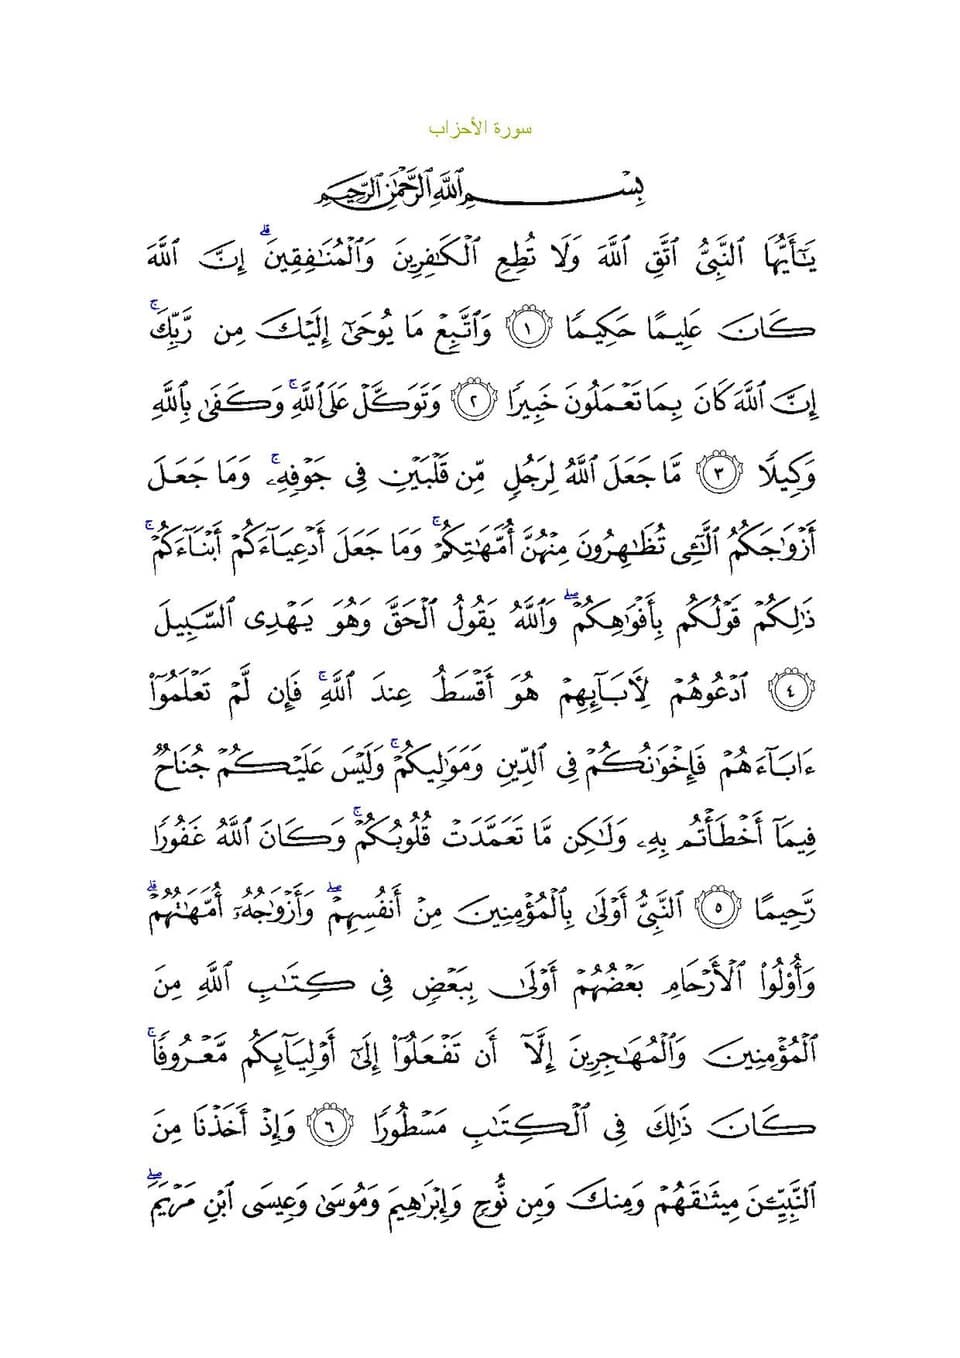 سورة الأحزاب
بِسْمِ ٱللَّهِ ٱلرَّحْمَٰنِ ٱلرَّحِيمِ
يَٰٓأَيُّهَا ٱلنَّبِىُّ ٱتَّقِ ٱللَّهَ وَلَا تُطِعِ ٱلْكَٰفِرِينَ وَٱلْمُنَٰفِقِينَ ۗ إِنَّ ٱللَّهَ
كَانَ عَلِيمًا حَكِيمًا ١ وَٱتَّبِعْ مَا يُوحَىٰٓ إِلَيْكَ مِن رَّبِّكَ ۚ
إِنَّ ٱللَّهَ كَانَ بِمَا تَعْمَلُونَ خَبِيرًا ٢ وَتَوَكَّلْ عَلَى ٱللَّهِ ۚ وَكَفَىٰ بِٱللَّهِ
وَكِيلًا ٣ مَّا جَعَلَ ٱللَّهُ لِرَجُلٍ مِّن قَلْبَيْنِ فِى جَوْفِهِۦ ۚ وَمَا جَعَلَ
أَزْوَٰجَكُمُ ٱلَّٰٓـِٔى تُظَٰهِرُونَ مِنْهُنَّ أُمَّهَٰتِكُمْ ۚ وَمَا جَعَلَ أَدْعِيَآءَكُمْ أَبْنَآءَكُمْ ۚ
ذَٰلِكُمْ قَوْلُكُم بِأَفْوَٰهِكُمْ ۖ وَٱللَّهُ يَقُولُ ٱلْحَقَّ وَهُوَ يَهْدِى ٱلسَّبِيلَ
٤ ٱدْعُوهُمْ لِءَابَآئِهِمْ هُوَ أَقْسَطُ عِندَ ٱللَّهِ ۚ فَإِن لَّمْ تَعْلَمُوٓا۟
ءَابَآءَهُمْ فَإِخْوَٰنُكُمْ فِى ٱلدِّينِ وَمَوَٰلِيكُمْ ۚ وَلَيْسَ عَلَيْكُمْ جُنَاحٌ
فِيمَآ أَخْطَأْتُم بِهِۦ وَلَٰكِن مَّا تَعَمَّدَتْ قُلُوبُكُمْ ۚ وَكَانَ ٱللَّهُ غَفُورًا
رَّحِيمًا ٥ ٱلنَّبِىُّ أَوْلَىٰ بِٱلْمُؤْمِنِينَ مِنْ أَنفُسِهِمْ ۖ وَأَزْوَٰجُهُۥٓ أُمَّهَٰتُهُمْ ۗ
وَأُو۟لُوا۟ ٱلْأَرْحَامِ بَعْضُهُمْ أَوْلَىٰ بِبَعْضٍ فِى كِتَٰبِ ٱللَّهِ مِنَ
ٱلْمُؤْمِنِينَ وَٱلْمُهَٰجِرِينَ إِلَّآ أَن تَفْعَلُوٓا۟ إِلَىٰٓ أَوْلِيَآئِكُم مَّعْرُوفًا ۚ
كَانَ ذَٰلِكَ فِى ٱلْكِتَٰبِ مَسْطُورًا ٦ وَإِذْ أَخَذْنَا مِنَ
ٱلنَّبِيِّـۧنَ مِيثَٰقَهُمْ وَمِنكَ وَمِن نُّوحٍ وَإِبْرَٰهِيمَ وَمُوسَىٰ وَعِيسَى ٱبْنِ مَرْيَمَ ۖ